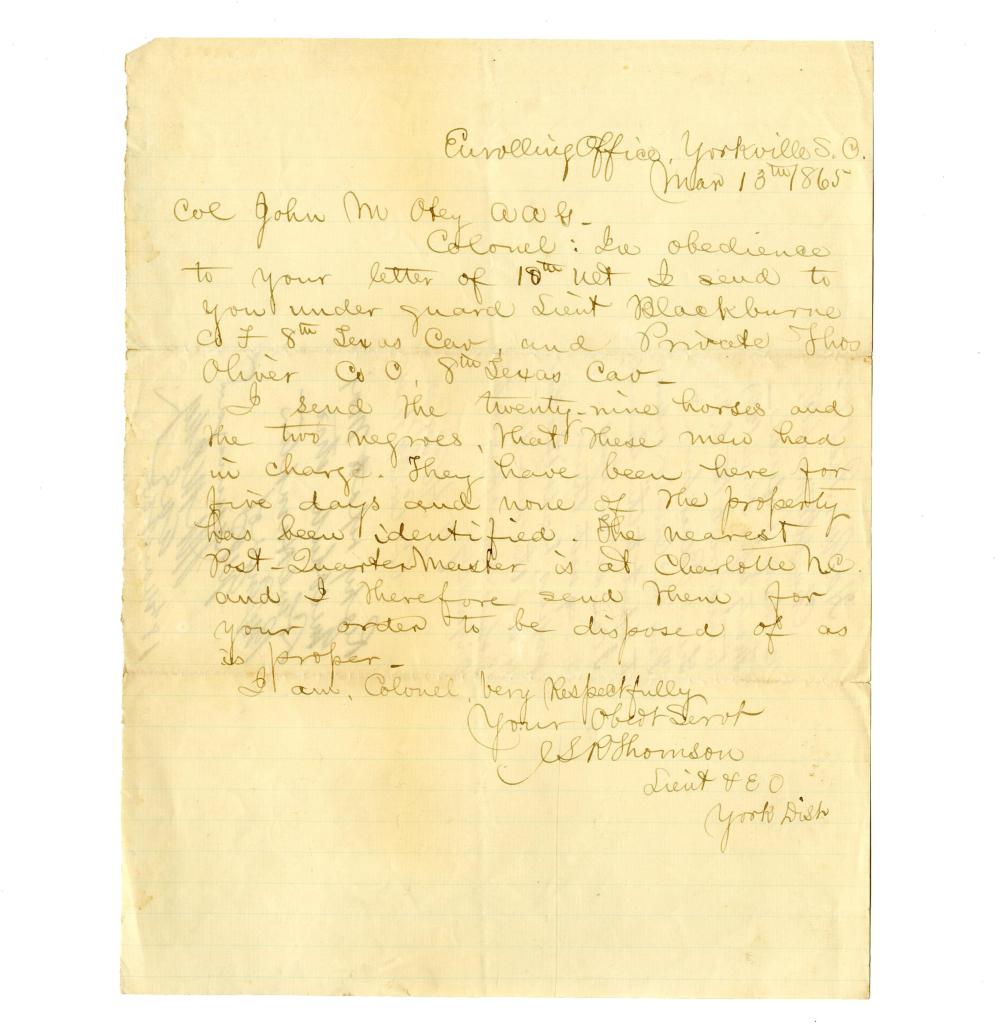 Enrolling Office, Yorkville S. C.
Mar 13th 1865
Col John M Otey A A G -
Colonel : In obedience
to your letter of 10th ult I send to
you under guard Lieut Blackburne
Co F 8th Texas Cav, and Private Thos
Oliver Co C, 8th Texas Cav -
I send the twenty-nine horses and
the two negroes, that these men had
in charge. They have been here for
five days and none of the property
has been identified. The nearest
Post-Quarter Master is at Charlotte N.C.
and I therefore send them for
your order to be disposed of as
is proper -
I am, Colonel, very Respectfully
Your Obedt Servt
J S R Thomson
Lieut & E O
York Dist